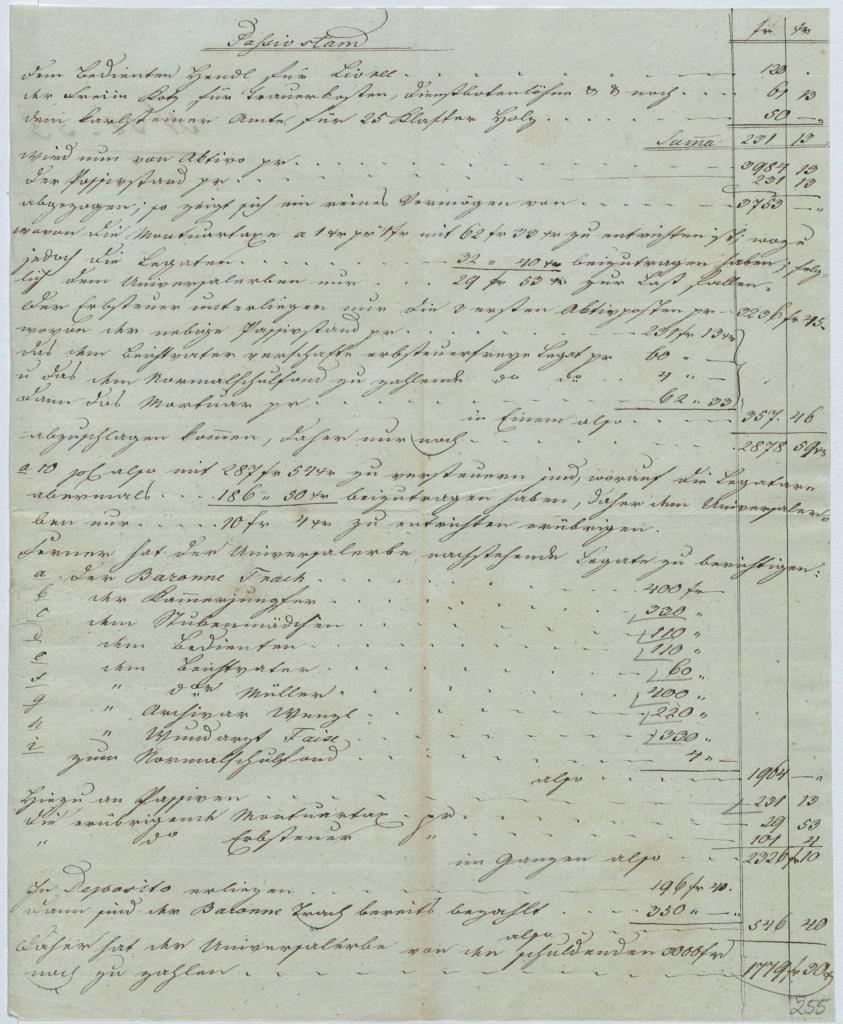 Passivstand
fr xr
dem Bedienten Hendl für Livree 120 .
der Freiin Kotz für Trauerkosten, Dienstbotenlöhne & & noch 61 13
dem Carlsteiner Amte für 25 Klafter Holz 50 —
Suma 231 13
wird nun von Aktivo pr 3984 13
der Passivstand pr 231 13
abgezogen; so zeigt sich ein reines Vermögen von 3753 —
wovon die Mortuartaxe a 1 xr pr 1 fr mit 62 fr 33 xr zu entrichten ist; wozu
jedoch die Legaten 32 " 40 xr beizutragen haben; folg-
lich dem Universalerben nur 29 fr 53 xr zur Last fallen.
Der Erbsteuer unterliegen nur die 3 ersten Aktivposten pr 3236 fr 45
wovon der nebige Passivstand pr 231 fr 13 xr
das dem Beichtvater verschafte erbsteuerfreye Legat pr 60 " —
u das dem Normalschulfond zu zahlende do do 4 " —
dann das Mortuar pr 62 " 33
in Einem also 357. 46
abzuschlagen kommen, daher nur noch 2878 59 xr
a 10 pC also mit 287 fr 54 xr zu versteuern sind, worauf die Legatare
abermals 186 " 50 xr beizutragen haben, daher dem Universaler-
ben nur 101 fr 4 xr zu entrichten erübrigen.
Ferner hat der Universalerbe nachstehende Legate zu berichtigen:
a der Baronne Trach 400 fr
b der Kammerjungfer 330 "
c dem Stubenmädchen 110 "
d dem Bedienten 110 "
e dem Beichtvater 60 "
f " Müller 400 "
g " Archivar Wenzl 220 "
h " Wundarzt 330 "
i zum Normalschulfond 4 "
also 1964 —
Hiezu an Passiven 231 13
die erübrigende Mortuartax pr 29 53
" do Erbsteuer " 101 4
im Ganzen also 2326 fr 10
In Deposito erliegen 196 fr 40.
dann sind der Baronne Trach bereits bezahlt 350 " —
also 546 40
Daher hat der Universalerbe von den schuldenden 3000 fr
noch zu zahlen 1779 fr 30 xr
255